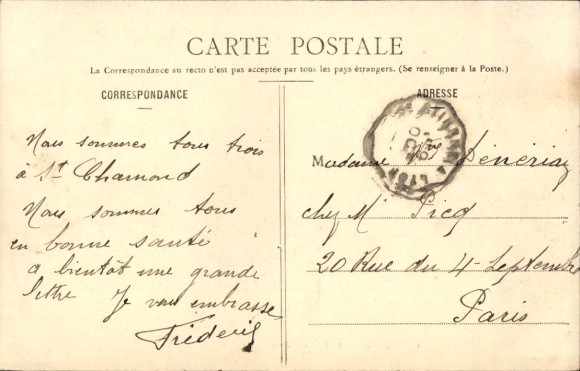 CARTE POSTALE
La Correspondance au recto n'est pas acceptée par tous les pays étrangers. (Se renseigner à la Poste.)
CORRESPONDANCE
Nous sommes tous trois
à St Chamond
Nous sommes tous
en bonne santé
a bientôt une grande
lettre Je vous embrasse
Frédéric
ADRESSE
Madame Vve
chez Mr Picq
20 Rue du 4 Septembre
Paris